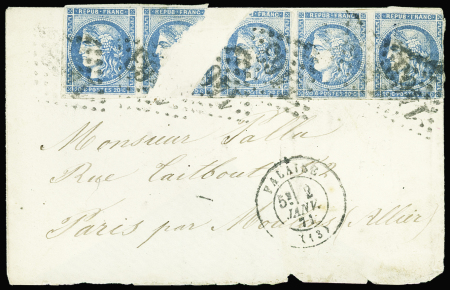 REPUB. FRANC. REPUB. FRANC. REPUB. FRANC. REPUB. FRANC.
20 C. POSTES 20 C.
Monsieur Falla
Rue Taitbout
Paris par Moulins (Allier)
FALAISE
5E
2
JANV.
71
(13)